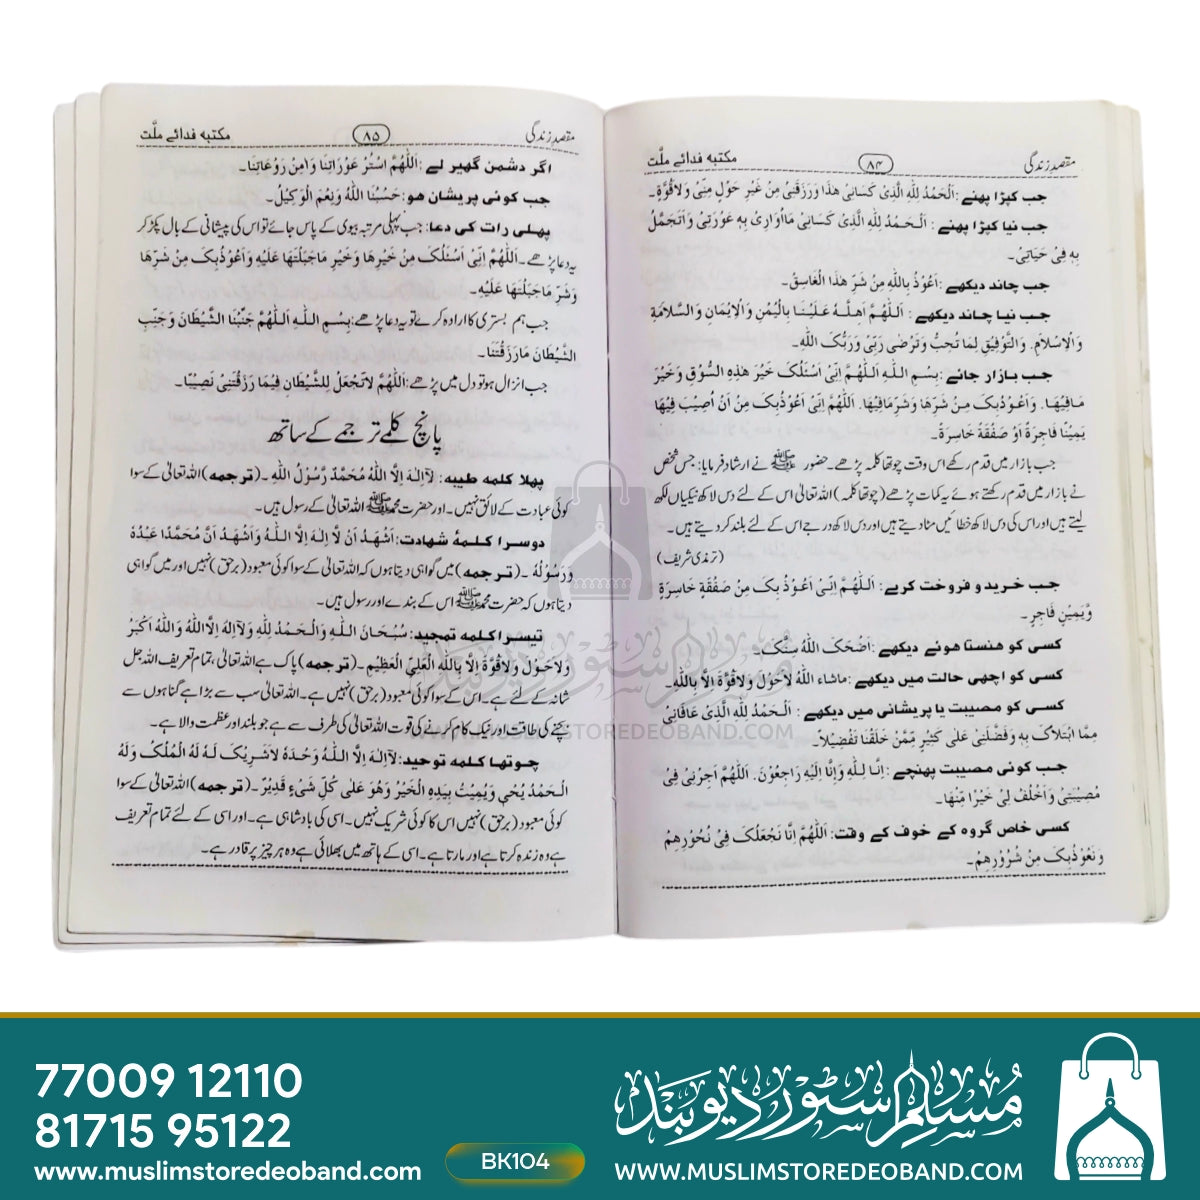 مقصدِ زندگی ۸۴ مکتبہ فدائے ملّت
جب کپڑا پہنے: اَلْحَمْدُ لِلّٰهِ الَّذِیْ کَسَانِیْ هٰذَا وَرَزَقَنِیْ مِنْ غَیْرِ حَوْلٍ مِّنِّیْ وَلَاقُوَّةٍ۔
جب نیا کپڑا پہنے: اَلْحَمْدُ لِلّٰهِ الَّذِیْ کَسَانِیْ مَااُوَارِیْ بِهٖ عَوْرَتِیْ وَاَتَجَمَّلُ
بِهٖ فِیْ حَیَاتِیْ۔
جب چاند دیکھے: اَعُوْذُ بِاللّٰهِ مِنْ شَرِّ هٰذَا الْغَاسِقِ۔
جب نیا چاند دیکھے: اَللّٰهُمَّ اَهِلَّهٗ عَلَیْنَا بِالْیُمْنِ وَالْاِیْمَانِ وَالسَّلَامَةِ
وَالْاِسْلَامِ. وَالتَّوْفِیْقِ لِمَا تُحِبُّ وَتَرْضٰی رَبِّیْ وَرَبُّکَ اللّٰهِ۔
جب بازار جائے: بِسْمِ اللّٰهِ اَللّٰهُمَّ اِنِّیْ اَسْئَلُکَ خَیْرَ هٰذِهِ السُّوْقِ وَخَیْرَ
مَافِیْهَا. وَاَعُوْذُبِکَ مِنْ شَرِّهَا وَشَرِّمَافِیْهَا. اَللّٰهُمَّ اِنِّیْ اَعُوْذُبِکَ مِنْ اَنْ اُصِیْبَ فِیْهَا
یَمِیْنًا فَاجِرَةً اَوْ صَفْقَةً خَاسِرَةً۔
جب بازار میں قدم رکھے اس وقت چوتھا کلمہ پڑھے۔ حضور ﷺ نے ارشاد فرمایا: جس شخص
نے بازار میں قدم رکھتے ہوئے یہ کلمات پڑھے (چوتھا کلمہ) اللہ تعالیٰ اس کے لئے دس لاکھ نیکیاں لکھ
لیتے ہیں اور اس کی دس لاکھ خطائیں مٹا دیتے ہیں اور دس لاکھ درجے اس کے لئے بلند کر دیتے ہیں۔
(ترمذی شریف)
جب خرید و فروخت کرے: اَللّٰهُمَّ اِنِّیْ اَعُوْذُ بِکَ مِنْ صَفْقَةٍ خَاسِرَةٍ
وَّیَمِیْنٍ فَاجِرٍ۔
کسی کو ہنستا ہوئے دیکھے: اَضْحَکَ اللّٰهُ سِنَّکَ۔
کسی کو اچھی حالت میں دیکھے: ماشاء اللّٰهُ لَاحَوْلَ وَلَاقُوَّةَ اِلَّا بِاللّٰهِ۔
کسی کو مصیبت یا پریشانی میں دیکھے: اَلْحَمْدُ لِلّٰهِ الَّذِیْ عَافَانِیْ
مِمَّا ابْتَلَاکَ بِهٖ وَفَضَّلَنِیْ عَلٰی کَثِیْرٍ مِّمَّنْ خَلَقْنَا تَفْضِیْلًا۔
جب کوئی مصیبت پہنچے: اِنَّا لِلّٰهِ وَاِنَّا اِلَیْهِ رَاجِعُوْنَ. اَللّٰهُمَّ اَجِرْنِیْ فِیْ
مُصِیْبَتِیْ وَاَخْلُفْ لِیْ خَیْرًا مِّنْهَا۔
کسی خاص گروہ کے خوف کے وقت: اَللّٰهُمَّ اِنَّا نَجْعَلُکَ فِیْ نُحُوْرِهِمْ
وَنَعُوْذُبِکَ مِنْ شُرُوْرِهِمْ۔
مقصدِ زندگی ۸۵ مکتبہ فدائے ملّت
اگر دشمن گھیر لے: اَللّٰهُمَّ اسْتُرْ عَوْرَاتِنَا وَاٰمِنْ رَوْعَاتِنَا۔
جب کوئی پریشان ھو: حَسْبُنَا اللّٰهُ وَنِعْمَ الْوَکِیْلُ۔
پہلی رات کی دعا: جب پہلی مرتبہ بیوی کے پاس جائے تو اس کی پیشانی کے بال پکڑ کر
یہ دعا پڑھے۔ اَللّٰهُمَّ اِنِّیْ اَسْئَلُکَ مِنْ خَیْرِهَا وَخَیْرِ مَاجَبَلْتَهَا عَلَیْهِ وَاَعُوْذُبِکَ مِنْ شَرِّهَا
وَشَرِّ مَاجَبَلْتَهَا عَلَیْهِ۔
جب ہم بستری کا ارادہ کرے تو یہ دعا پڑھے: بِسْمِ اللّٰهِ اَللّٰهُمَّ جَنِّبْنَا الشَّیْطَانَ وَجَنِّبِ
الشَّیْطَانَ مَارَزَقْتَنَا۔
جب انزال ہو تو دل میں پڑھے: اَللّٰهُمَّ لَاتَجْعَلْ لِلشَّیْطَانِ فِیْمَا رَزَقْتَنِیْ نَصِیْبًا۔
پانچ کلمے ترجمے کے ساتھ
پہلا کلمہ طیبہ: لَآاِلٰهَ اِلَّا اللّٰهُ مُحَمَّدٌ رَّسُوْلُ اللّٰهِ۔ (ترجمہ) اللہ تعالیٰ کے سوا
کوئی عبادت کے لائق نہیں۔ اور حضرت محمد ﷺ اللہ تعالیٰ کے رسول ہیں۔
دوسرا کلمۂ شہادت: اَشْهَدُ اَنْ لَّا اِلٰهَ اِلَّا اللّٰهُ وَاَشْهَدُ اَنَّ مُحَمَّدًا عَبْدُهٗ
وَرَسُوْلُهٗ۔ (ترجمہ) میں گواہی دیتا ہوں کہ اللہ تعالیٰ کے سوا کوئی معبود (برحق) نہیں اور میں گواہی
دیتا ہوں کہ حضرت محمد ﷺ اس کے بندے اور رسول ہیں۔
تیسرا کلمہ تمجید: سُبْحَانَ اللّٰهِ وَالْحَمْدُ لِلّٰهِ وَلَآاِلٰهَ اِلَّااللّٰهُ وَاللّٰهُ اَکْبَرُ
وَلَاحَوْلَ وَلَاقُوَّةَ اِلَّا بِاللّٰهِ الْعَلِیِّ الْعَظِیْمِ۔ (ترجمہ) پاک ہے اللہ تعالیٰ، تمام تعریف اللہ جل
شانہ کے لئے ہے۔ اس کے سوا کوئی معبود (برحق) نہیں ہے۔ اللہ تعالیٰ سب سے بڑا ہے گناہوں سے
بچنے کی طاقت اور نیک کام کرنے کی قوت اللہ تعالیٰ کی طرف سے ہے جو بلند اور عظمت والا ہے۔
چوتھا کلمہ توحید: لَآاِلٰهَ اِلَّا اللّٰهُ وَحْدَهٗ لَاشَرِیْکَ لَهٗ لَهُ الْمُلْکُ وَلَهُ
الْحَمْدُ یُحْیٖ وَیُمِیْتُ بِیَدِهِ الْخَیْرُ وَهُوَ عَلٰی کُلِّ شَیْءٍ قَدِیْرٌ۔ (ترجمہ) اللہ تعالیٰ کے سوا
کوئی معبود (برحق) نہیں اس کا کوئی شریک نہیں۔ اسی کی بادشاہی ہے۔ اور اسی کے لئے تمام تعریف
ہے وہ زندہ کرتا ہے اور مارتا ہے۔ اسی کے ہاتھ میں بھلائی ہے وہ ہر چیز پر قادر ہے۔
مسلم سٹور دیوبند
WWW.MUSLIMSTOREDEOBAND.COM
77009 12110
81715 95122
www.muslimstoredeoband.com
BK104
مسلم سٹور دیوبند
WWW.MUSLIMSTOREDEOBAND.COM